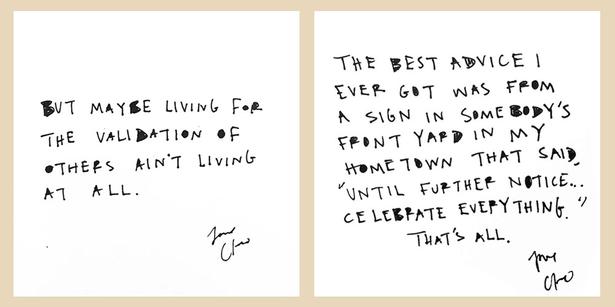 BUT MAYBE LIVING FOR
THE VALIDATION OF
OTHERS AIN'T LIVING
AT ALL.
love
Cleo
THE BEST ADVICE I
EVER GOT WAS FROM
A SIGN IN SOMEBODY'S
FRONT YARD IN MY
HOMETOWN THAT SAID,
"UNTIL FURTHER NOTICE...
CELEBRATE EVERYTHING."
THAT'S ALL.
love
Cleo